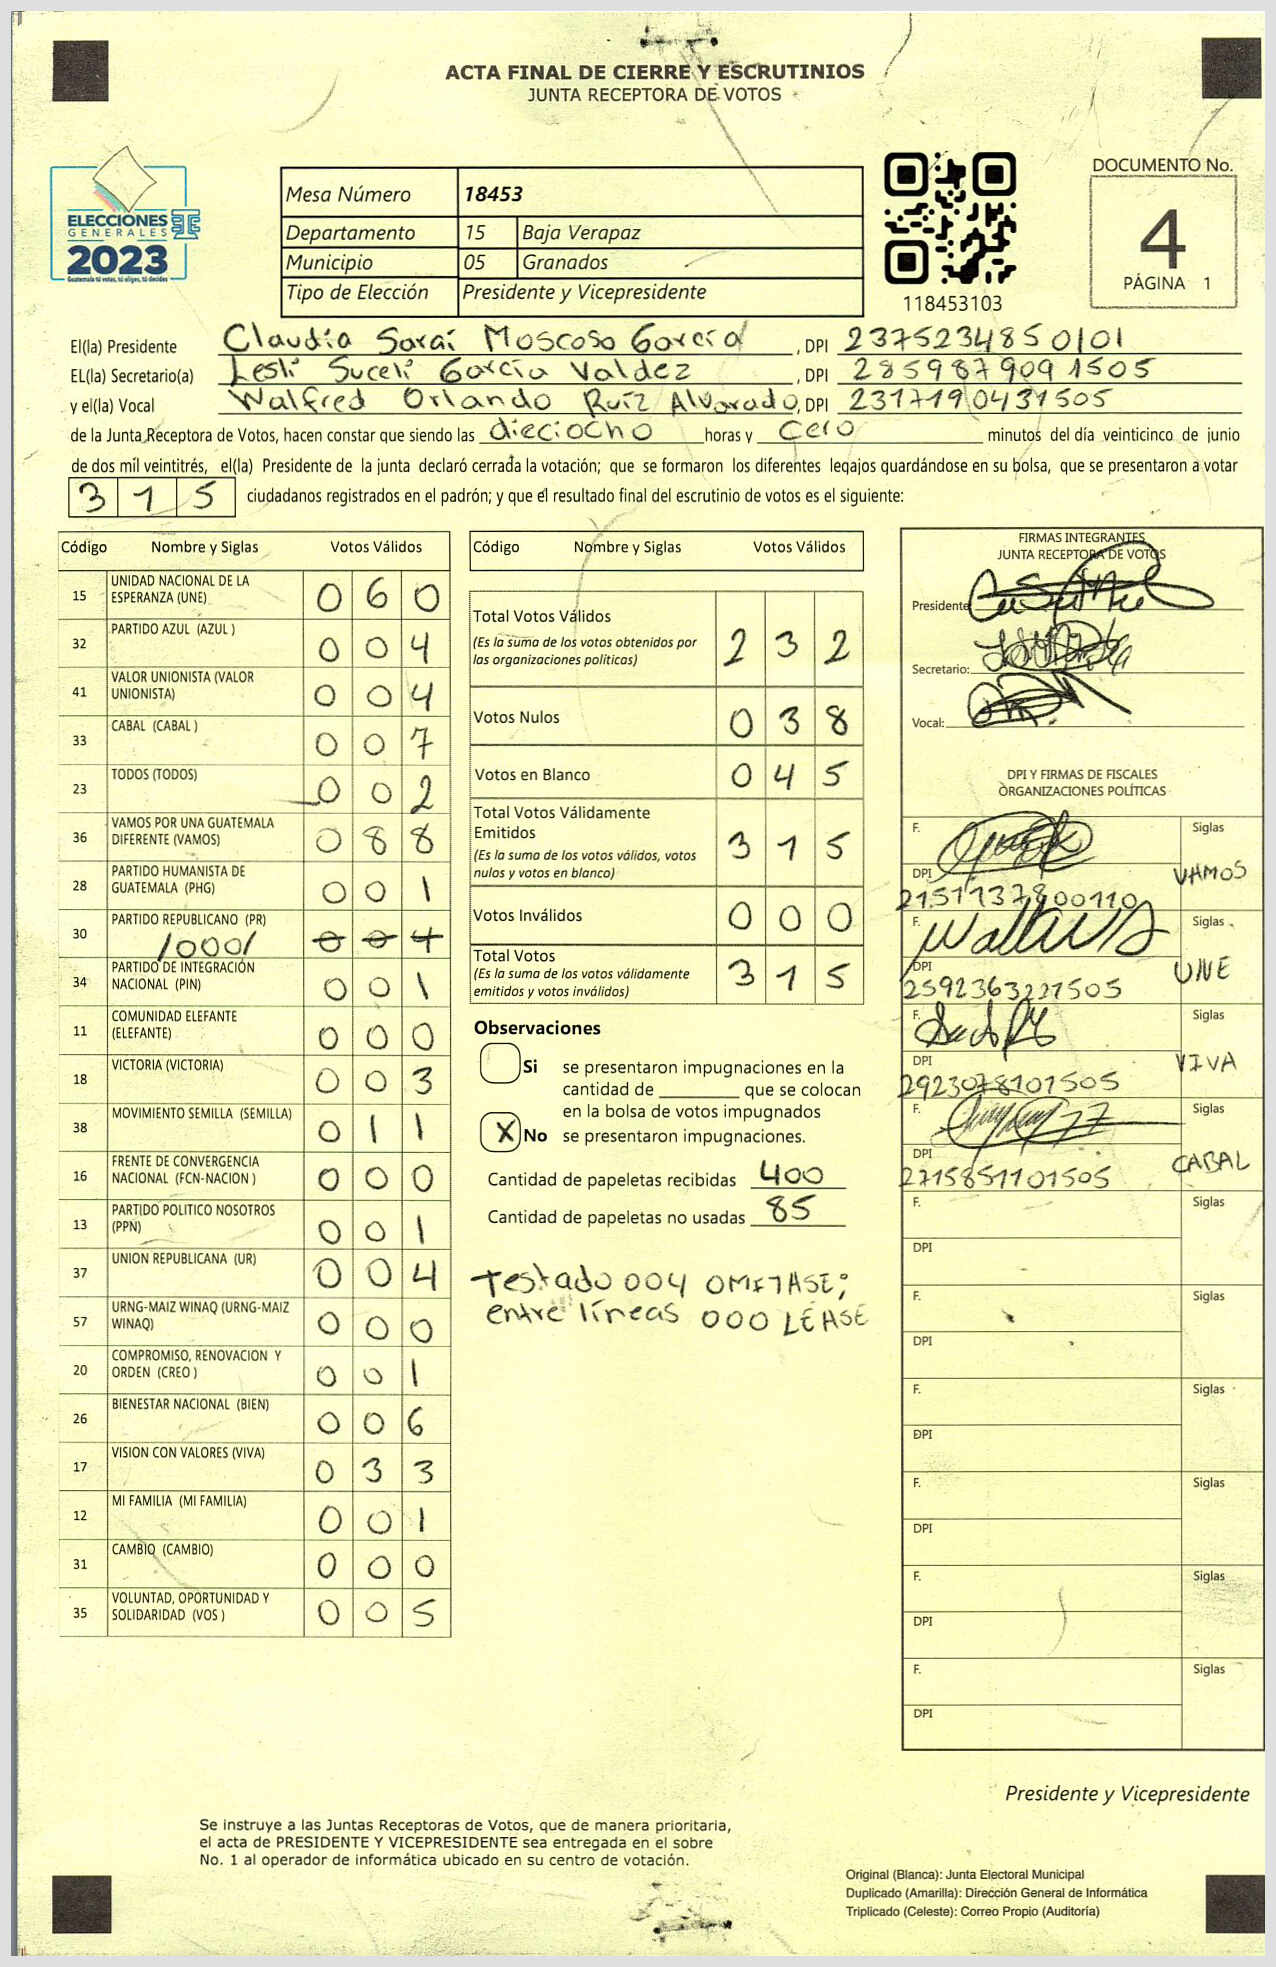 ACTA FINAL DE CIERRE Y ESCRUTINIOS
JUNTA RECEPTORA DE VOTOS
ELECCIONES
GENERALES
2023
Guatemala tú votas, tú eliges, tú decides
Mesa Número 18453
Departamento 15 Baja Verapaz
Municipio 05 Granados
Tipo de Elección Presidente y Vicepresidente
118453103
DOCUMENTO No.
4
PÁGINA 1
El(la) Presidente Claudia Saraí Moscoso García, DPI 2375234850101
EL(la) Secretario(a) Lesli Suceli García Valdez, DPI 2859879091505
y el(la) Vocal Walfred Orlando Ruíz Alvarado, DPI 2317190431505
de la Junta Receptora de Votos, hacen constar que siendo las dieciocho horas y cero minutos del día veinticinco de junio
de dos mil veintitrés, el(la) Presidente de la junta declaró cerrada la votación; que se formaron los diferentes legajos guardándose en su bolsa, que se presentaron a votar
315 ciudadanos registrados en el padrón; y que el resultado final del escrutinio de votos es el siguiente:
Código Nombre y Siglas Votos Válidos
15 UNIDAD NACIONAL DE LA ESPERANZA (UNE) 0 6 0
32 PARTIDO AZUL (AZUL ) 0 0 4
41 VALOR UNIONISTA (VALOR UNIONISTA) 0 0 4
33 CABAL (CABAL ) 0 0 7
23 TODOS (TODOS) 0 0 2
36 VAMOS POR UNA GUATEMALA DIFERENTE (VAMOS) 0 8 8
28 PARTIDO HUMANISTA DE GUATEMALA (PHG) 0 0 1
30 PARTIDO REPUBLICANO (PR) /000/ 0 0 4
34 PARTIDO DE INTEGRACIÓN NACIONAL (PIN) 0 0 1
11 COMUNIDAD ELEFANTE (ELEFANTE) 0 0 0
18 VICTORIA (VICTORIA) 0 0 3
38 MOVIMIENTO SEMILLA (SEMILLA) 0 1 1
16 FRENTE DE CONVERGENCIA NACIONAL (FCN-NACION ) 0 0 0
13 PARTIDO POLITICO NOSOTROS (PPN) 0 0 1
37 UNION REPUBLICANA (UR) 0 0 4
57 URNG-MAIZ WINAQ (URNG-MAIZ WINAQ) 0 0 0
20 COMPROMISO, RENOVACION Y ORDEN (CREO ) 0 0 1
26 BIENESTAR NACIONAL (BIEN) 0 0 6
17 VISION CON VALORES (VIVA) 0 3 3
12 MI FAMILIA (MI FAMILIA) 0 0 1
31 CAMBIO (CAMBIO) 0 0 0
35 VOLUNTAD, OPORTUNIDAD Y SOLIDARIDAD (VOS ) 0 0 5
Código Nombre y Siglas Votos Válidos
Total Votos Válidos 2 3 2
(Es la suma de los votos obtenidos por
las organizaciones políticas)
Votos Nulos 0 3 8
Votos en Blanco 0 4 5
Total Votos Válidamente
Emitidos 3 1 5
(Es la suma de los votos válidos, votos
nulos y votos en blanco)
Votos Inválidos 0 0 0
Total Votos 3 1 5
(Es la suma de los votos válidamente
emitidos y votos inválidos)
Observaciones
Si se presentaron impugnaciones en la
cantidad de ________ que se colocan
en la bolsa de votos impugnados
X No se presentaron impugnaciones.
Cantidad de papeletas recibidas 400
Cantidad de papeletas no usadas 85
Testado 004 OMITASE;
entre líneas 000 LEASE
FIRMAS INTEGRANTES
JUNTA RECEPTORA DE VOTOS
Presidente
Secretario:
Vocal:
DPI Y FIRMAS DE FISCALES
ORGANIZACIONES POLÍTICAS
F. Siglas
VAMOS
DPI
2151137800110
F. Siglas
UNE
DPI
2592363221505
F. Siglas
VIVA
DPI
2923078101505
F. Siglas
CABAL
DPI
2715851101505
F. Siglas
DPI
F. Siglas
DPI
F. Siglas
DPI
F. Siglas
DPI
F. Siglas
DPI
F. Siglas
DPI
Presidente y Vicepresidente
Se instruye a las Juntas Receptoras de Votos, que de manera prioritaria,
el acta de PRESIDENTE Y VICEPRESIDENTE sea entregada en el sobre
No. 1 al operador de informática ubicado en su centro de votación.
Original (Blanca): Junta Electoral Municipal
Duplicado (Amarilla): Dirección General de Informática
Triplicado (Celeste): Correo Propio (Auditoría)